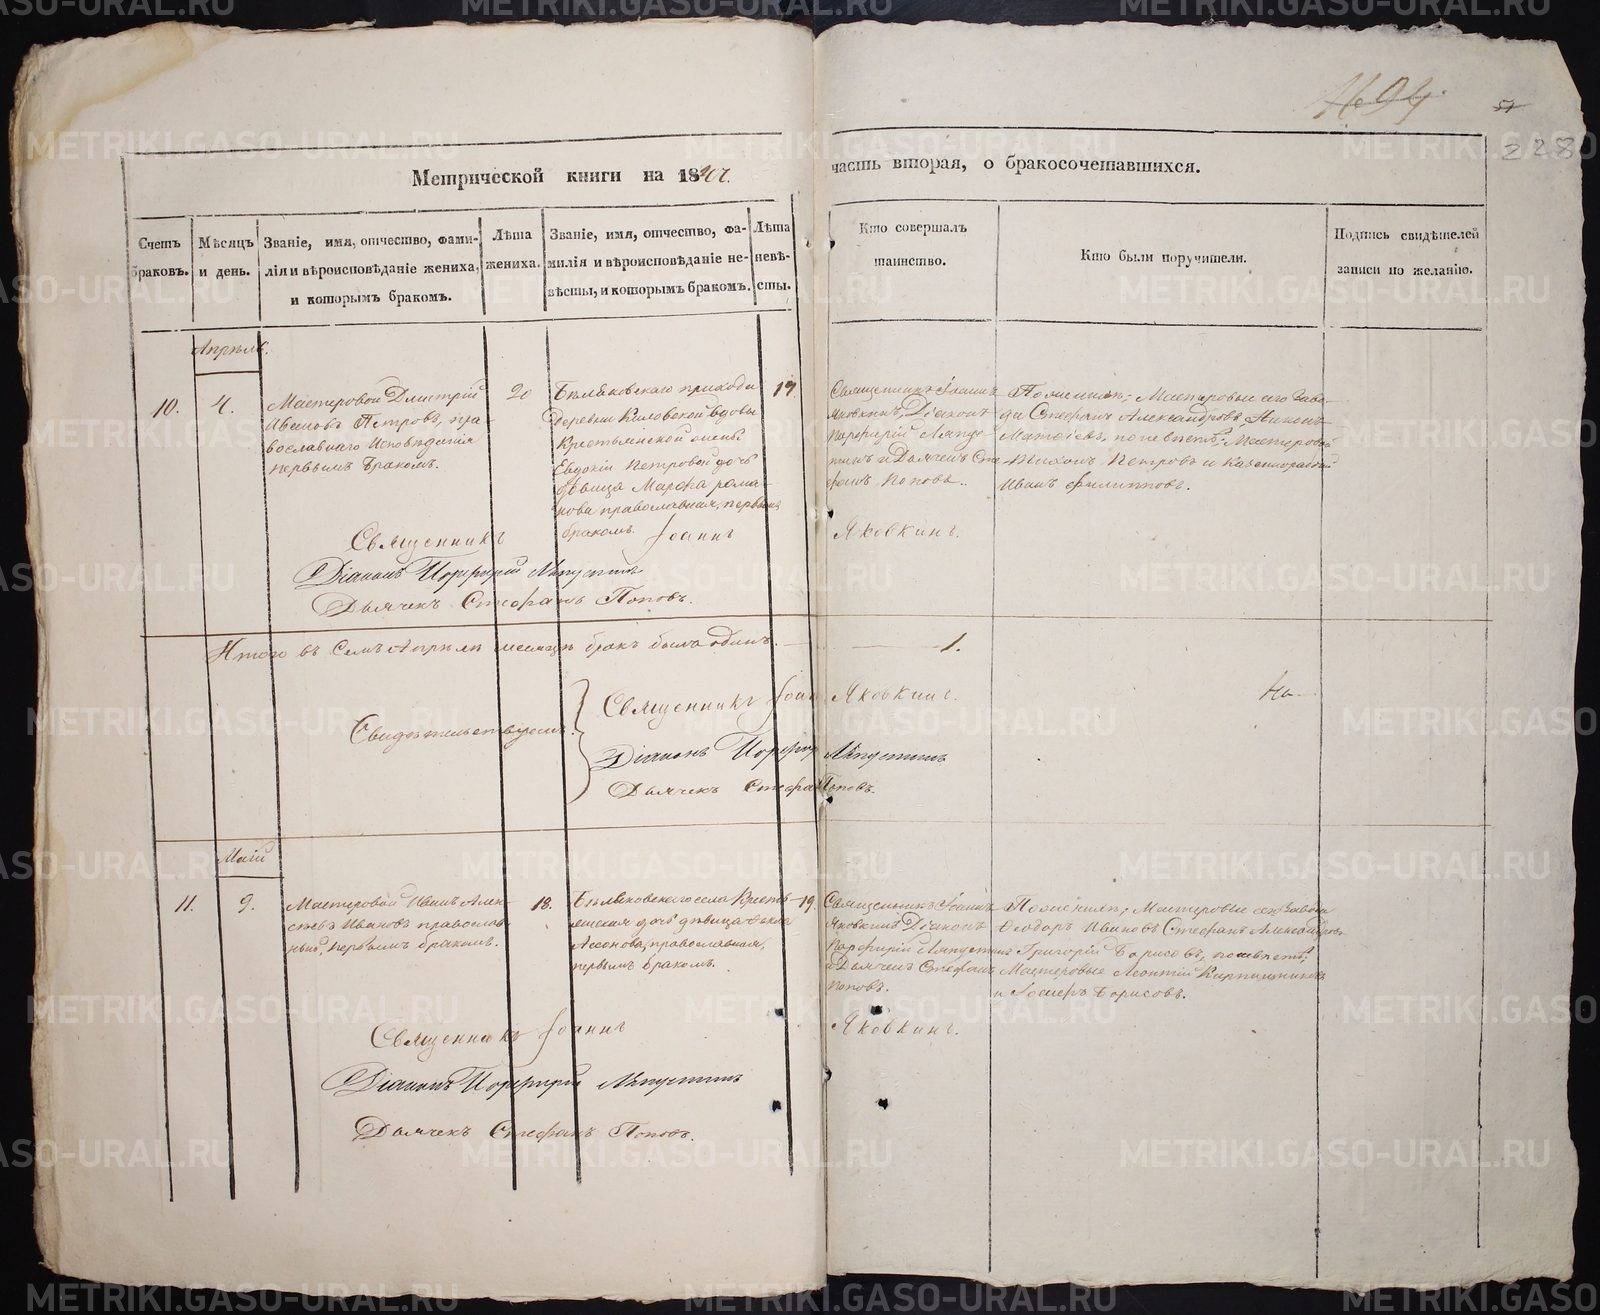 Метрической книги на 18
часть вторая, о бракосочетавшихся.
228
Счетъ браковъ.
Мѣсяцъ и день.
Званіе, имя, отчество, фами-
лія и вѣроисповѣданіе жениха,
и которымъ бракомъ.
Лѣта
жениха.
Званіе, имя, отчество, фа-
милія и вѣроисповѣданіе не-
вѣсты, и которымъ бракомъ.
Лѣта
невѣ-
сты.
Кто совершалъ
таинство.
Кто были поручители.
Подпись свидѣтелей
записи по желанію.
Апрѣль.
10.
4.
Мастеровой Дмитрій
Ивановъ Петровъ, пра-
вославнаго Исповѣданія
первымъ бракомъ.
20
прихода
деревни вдовы
Крестьянской жены
Евдокіи Петровой дочь
дѣвица Марѳа рома-
нова православная, первымъ
бракомъ.
19.
Священникъ Іоаннъ
Яковкинъ, Діаконъ
Порфирій Ляпу-
стинъ и Дьячекъ Сте
фанъ Поповъ.
Поженихѣ; Мастеровые его Заво-
да Стефанъ Александровъ, Никонъ
Матѳіевъ, поневѣстѣ; Мастеровой
Тихонъ Петровъ и
Иванъ Филипповъ.
Священникъ Іоаннъ Яковкинъ.
Діаконъ Порфирій Ляпустинъ
Дьячекъ Стефанъ Поповъ.
Итого въ Семъ Апрѣлѣ месяцѣ бракъ былъ одинъ. 1.
Свидѣтельствуемъ:
Священникъ Іоан Яковкинъ.
Діаконъ Порфир Ляпустинъ
Дьячекъ Стефан Поповъ.
Маій
11.
9.
Мастеровой Иванъ Алек-
сѣевъ Ивановъ православ-
ный, первымъ бракомъ.
18.
села Крестъ-
янская дочь дѣвица
православная,
первымъ бракомъ.
19.
Священникъ Іоаннъ
Яковкинъ Діаконъ
Порфирій Ляпустинъ
и Дьячекъ Стефанъ
Поповъ.
Поженихѣ; Мастеровые сего Завода
Ѳеодоръ Ивановъ Стефанъ Александровъ
Григорій Борисовъ, поневѣстѣ;
Мастеровые Леонтій
и Іосифъ Борисовъ.
Священникъ Іоаннъ Яковкинъ.
Діаконъ Порфирій Ляпустинъ
Дьячекъ Стефанъ Поповъ.
METRIKI.GASO-URAL.RU